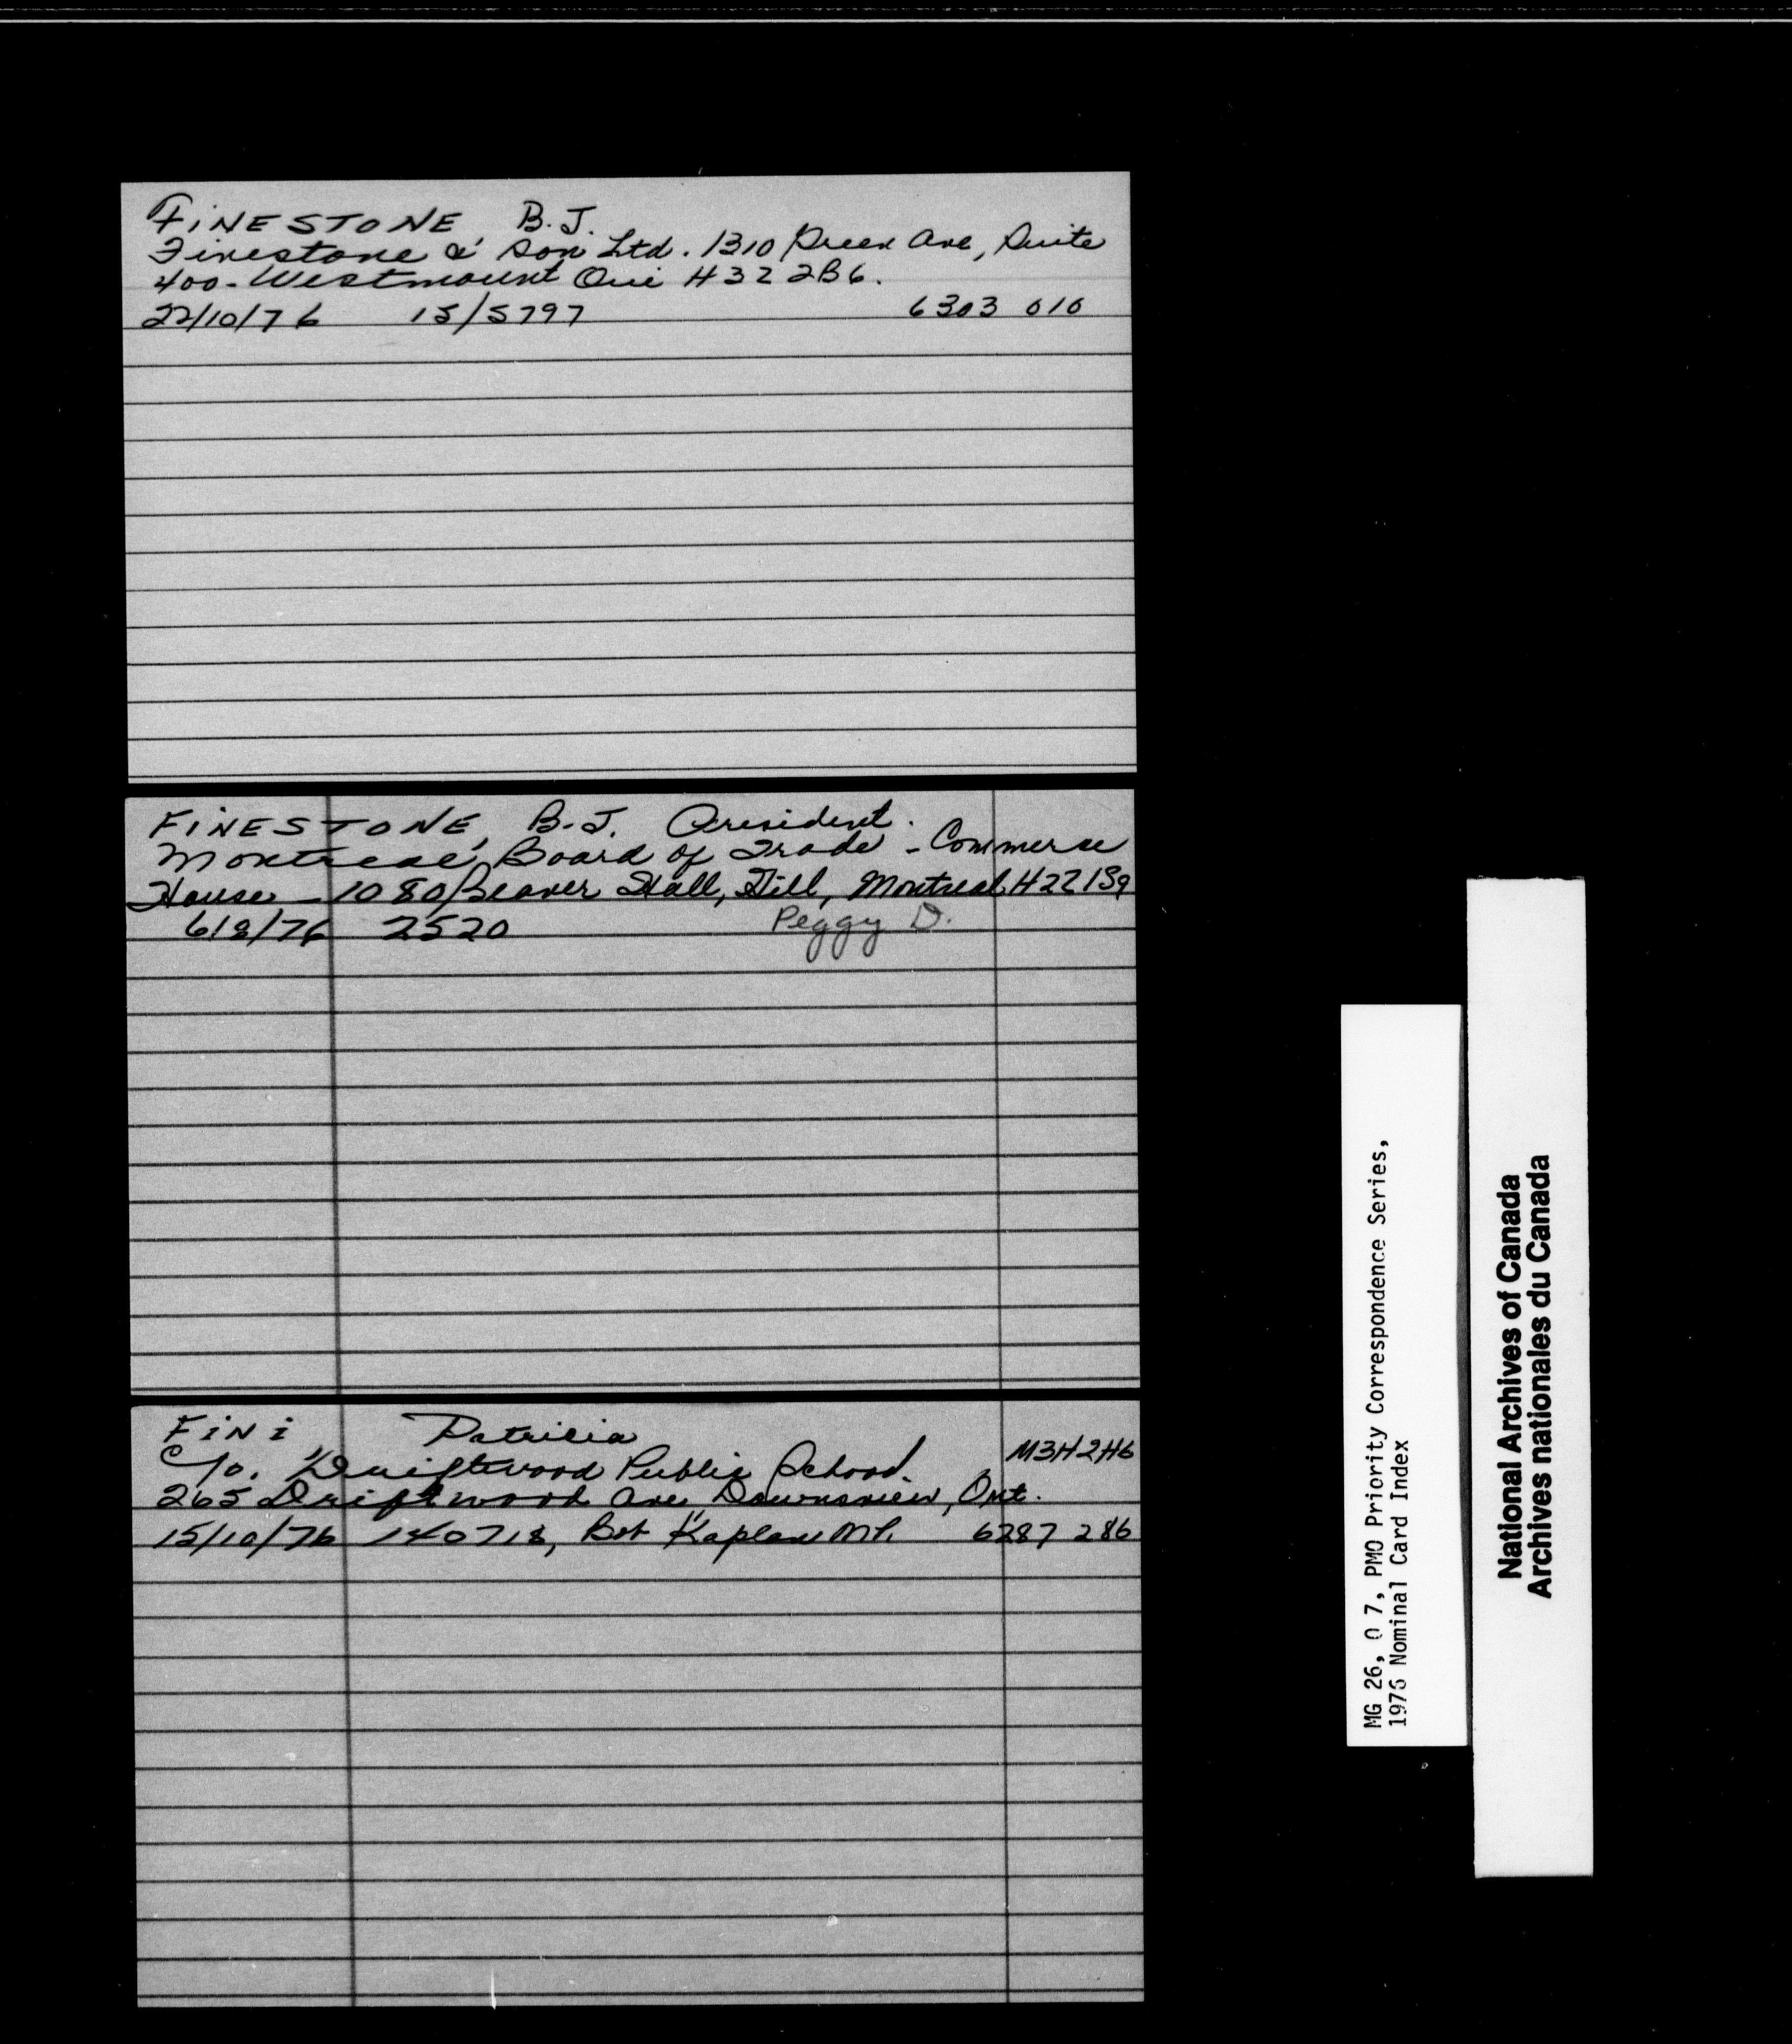 FINESTONE, B.J.
Finestone & Son Ltd. 1310 Green Ave, Suite
400 - Westmount Que H3Z 2B6.
22/10/76 15/5797 6303 010
FINESTONE, B.J. President.
Montreal Board of Trade - Commerce
House - 1080 Beaver Hall, Hill, Montreal H2Z 1S9
6/8/76 2520 Peggy D.
FINI Patricia
C/o. Driftwood Public School. M3H2H6
265 Driftwood Ave, Downsview, Ont.
15/10/76 140718, Bob Kaplan M.P. 6287 286
MG 26, O 7, PMO Priority Correspondence Series,
1976 Nominal Card Index
National Archives of Canada
Archives nationales du Canada